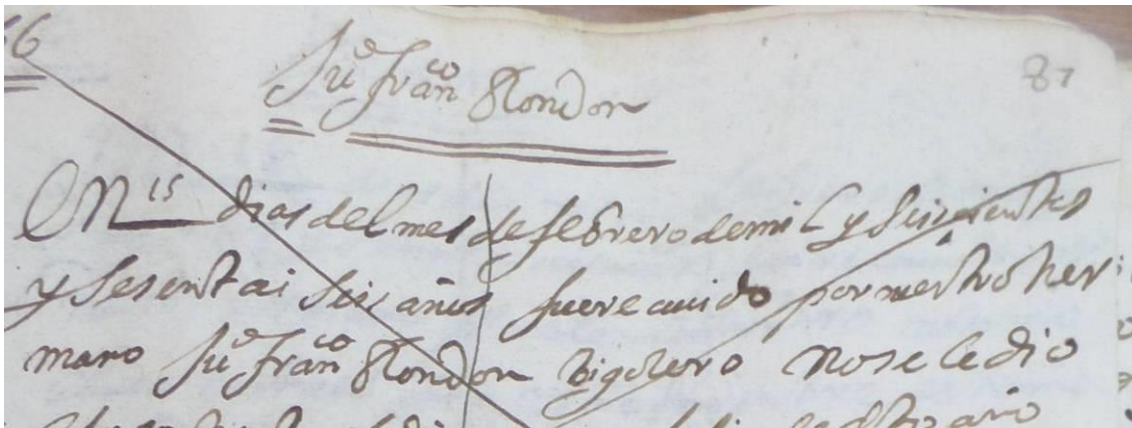 66
87
Ju.o Fran.co Rondon
En 15 dias del mes de febrero de mil y seiscientos
y sesentai seis años fue reciuido por nuestro her
mano Ju.o Fran.co Rondon no se le dio
año